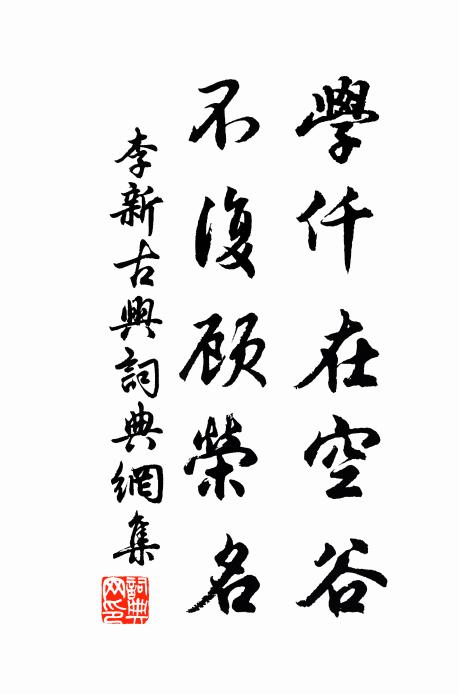 學仟在空谷
不復顧榮名
李新古興詞典網集
詞典
网印